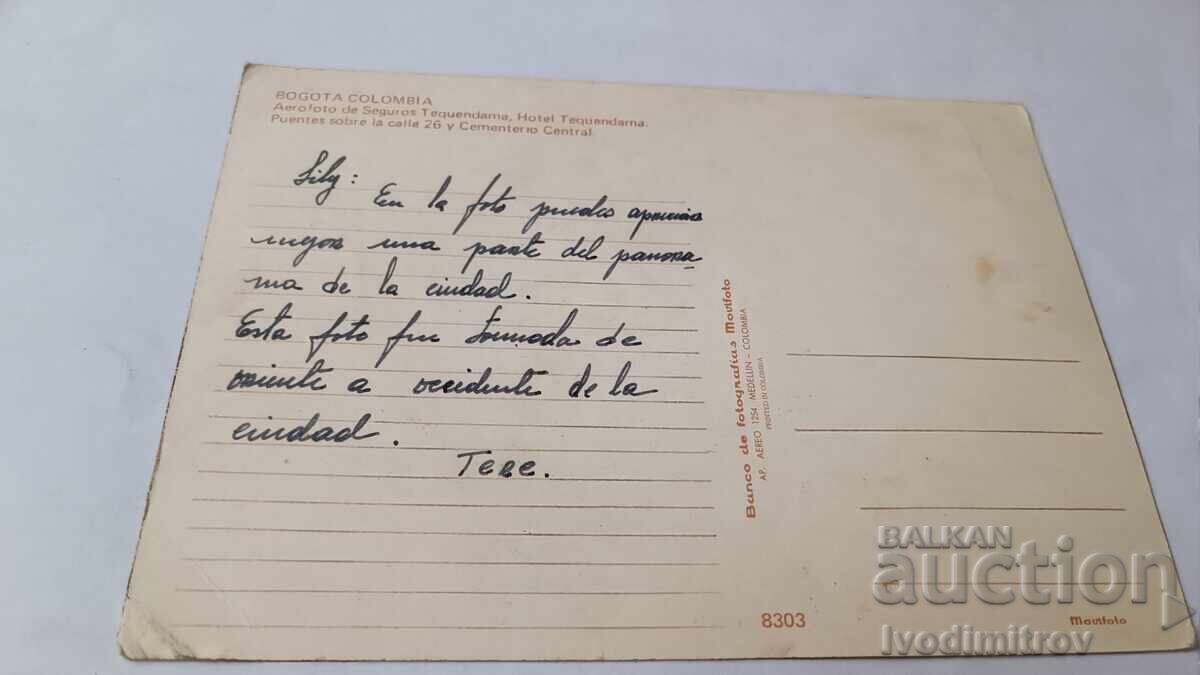 BOGOTA COLOMBIA
Aerofoto de Seguros Tequendama, Hotel Tequendama.
Puentes sobre la calle 26 y Cementerio Central
Lily: En la foto puedes apreciar
mejor una parte del panora-
ma de la ciudad.
Esta foto fue tomada de
oriente a occidente de la
ciudad.
Tere.
Banco de fotografías Movifoto
AP. AEREO 1254 MEDELLIN - COLOMBIA
PRINTED IN COLOMBIA
8303
Movifoto
BALKAN
auction
Ivodimitrov